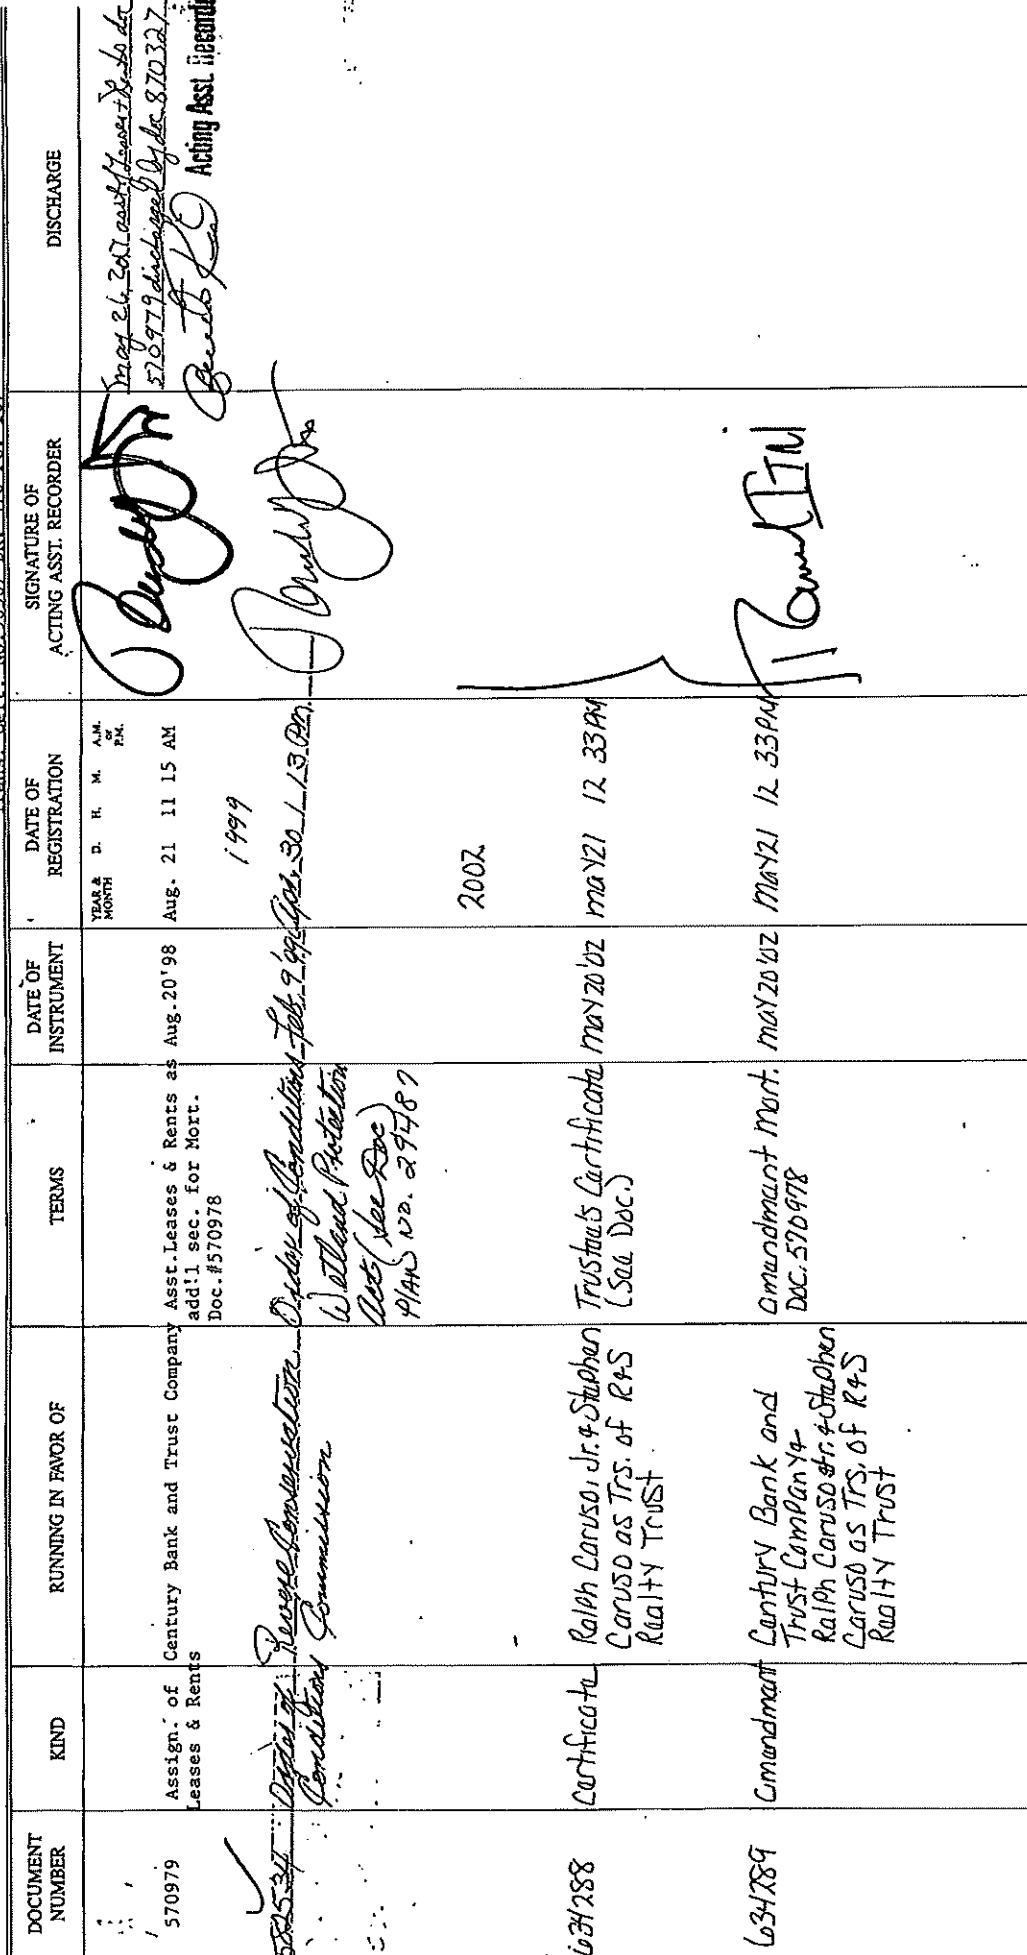 DOCUMENT NUMBER
KIND
RUNNING IN FAVOR OF
TERMS
DATE OF INSTRUMENT
DATE OF REGISTRATION
SIGNATURE OF ACTING ASST. RECORDER
DISCHARGE
YEAR & MONTH D. H. M. A.M. or P.M.
570979
Assign. of
Leases & Rents
Century Bank and Trust Company
Asst.Leases & Rents as
add'l sec. for Mort.
Doc.#570978
Aug.20'98
Aug. 21 11 15 AM
570979 discharged by doc 870327
Acting Asst.
1999
Order of
Conditions
Revere Conservation
Commission
Order of Conditions
Wetland Protection
Act (See Doc)
Plan No. 29487
Feb. 9 '99
Apr. 30 1 13 PM
2002
634288
Certificate
Ralph Caruso, Jr. & Stephen
Caruso as Trs. of R&S
Realty Trust
Trustee's Certificate
(See Doc.)
May 20 '02
May 21 12 33 PM
634289
Amendment
Century Bank and
Trust Company &
Ralph Caruso Jr. & Stephen
Caruso as Trs. of R&S
Realty Trust
Amendment Mort.
Doc. 570978
May 20 '02
May 21 12 33 PM